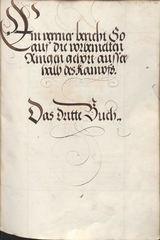 Ein vernier bericht So
auf die vorbemelten
Ringen gehort ausser
halb des Kampfs.
Das dritte Buch.